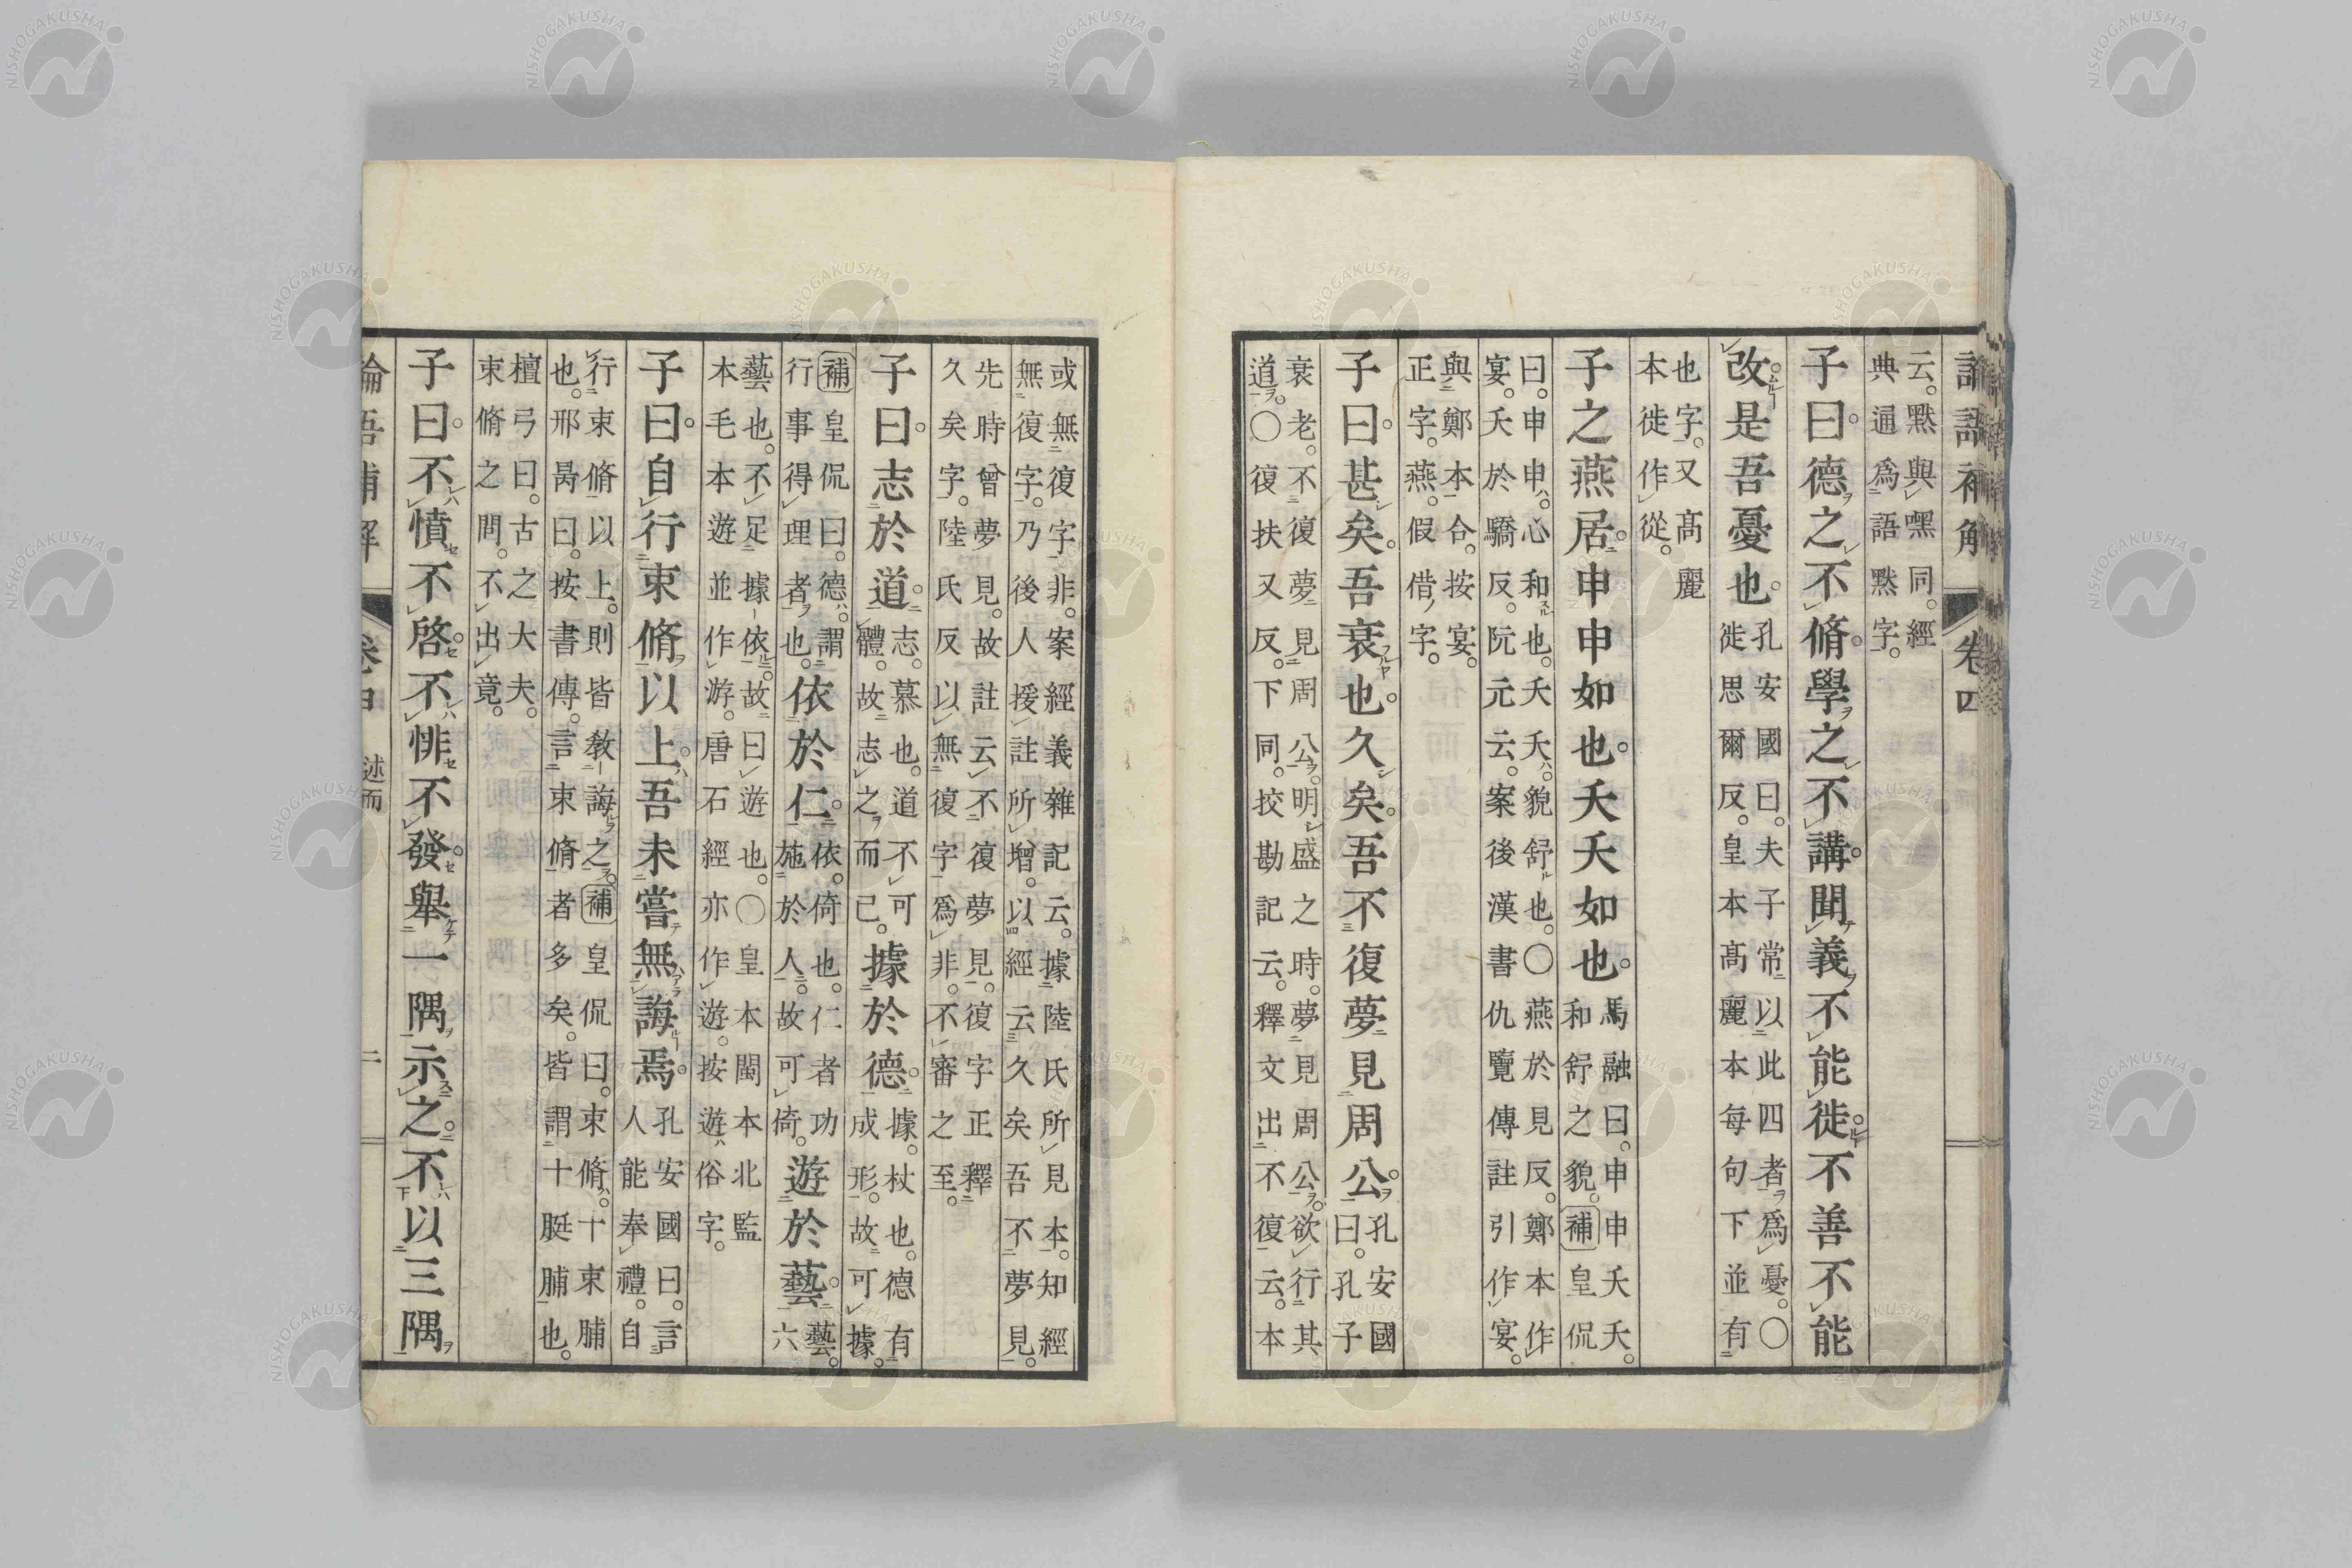 論語補解 卷四
云。默與嘿同。經
典通爲語默字。
子曰。德之不脩。學之不講。聞義不能徙。不善不能
改。是吾憂也。
孔安國曰。夫子常以此四者爲憂。○
徙思爾反。皇本高麗本每句下並有
也字。又高麗
本徙作從。
子之燕居。申申如也。夭夭如也。
馬融曰。申申夭夭。
和舒之貌。補皇侃
曰。申申。心和也。夭夭。貌舒也。○燕於見反。鄭本作
宴。夭於驕反。阮元云。案後漢書仇覽傳註引作宴。
與鄭本合。按宴。
正字。燕。假借字。
子曰。甚矣。吾衰也。久矣。吾不復夢見周公。
孔安國
曰。孔子
衰老。不復夢見周公。明盛之時。夢見周公。欲行其
道。○復扶又反。下同。挍勘記云。釋文出不復云。本
或無復字非。案經義雜記云。據陸氏所見本。知經
無復字。乃後人援註所增。以經云久矣吾不夢見。
先時曾夢見。故註云不復夢見。復字正釋
久矣字。陸氏反以無復字爲非。不審之至。
子曰。志於道。
志。慕也。道不可
體。故志之而已。
據於德。
據。杖也。德有
成形。故可據。
補皇侃曰。德。謂
行事得理者也。
依於仁。
依。倚也。仁者功
施於人。故可倚。
遊於藝。
藝。
六
藝也。不足據依。故曰遊也。○皇本閩本北監
本毛本遊並作游。唐石經亦作遊。按遊俗字。
子曰。自行束脩以上。吾未嘗無誨焉。
孔安國曰。言
人能奉禮。自
行束脩以上。則皆教誨之。補皇侃曰。束脩。十束脯
也。邢昺曰。按書傳。言束脩者多矣。皆謂十脡脯也。
檀弓曰。古之大夫。
束脩之問。不出竟。
子曰。不憤不啓。不悱不發。舉一隅示之。不以三隅
論吾補解 卷四 述而 二
NISHOGAKUSHA